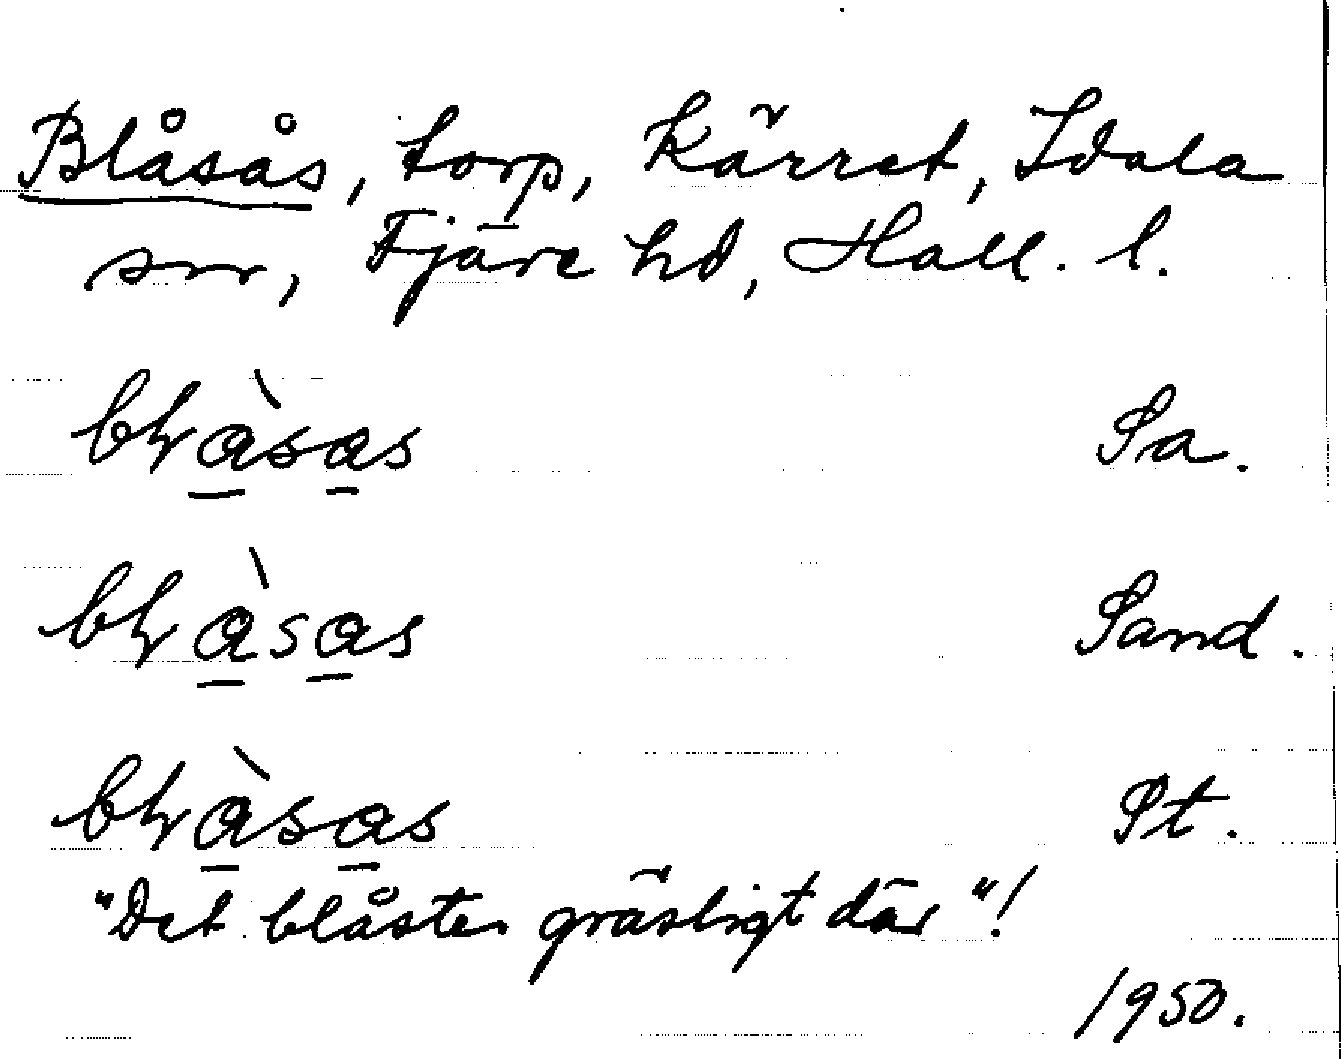 Blåsås, torp, Kärret, Idala
sn, Fjäre hd, Hall. l.
bɫàsas Sa.
bɫàsas Sand.
bɫàsas St.
"Det blåste gräsligt där"!
1950.